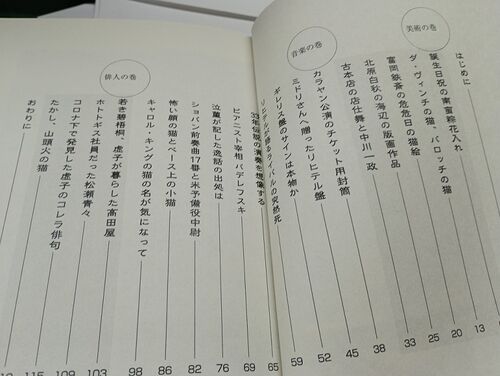 美術の巻
はじめに
誕生日祝の南蛮粽花入れ
ダ・ヴィンチの猫、バロッチの猫
富岡鉄斎の危危日の猫絵
北原白秋の海辺の版画作品
古本店の店仕舞と中川一政
音楽の巻
カラヤン公演のチケット用封筒
ミドリさんへ贈ったリヒテル盤
ギレリス盤のサインは本物か
リヒテルが語るライバルの突然死
33年伝説の演奏を想像する
ピアニスト宰相パデレフスキ
泣菫が記した逸話の出処は
ショパン前奏曲17番と米予備役中尉
怖い顔の猫とベース上の小猫
キャロル・キングの猫の名が気になって
俳人の巻
若き碧梧桐、虚子が暮らした高田屋
ホトトギス社員だった松瀬青々
コロナ下で発見した虚子のコレラ俳句
たかし、山頭火の猫
おわりに
13
20
25
33
38
45
52
59
65
69
76
82
86
98
103
109
115